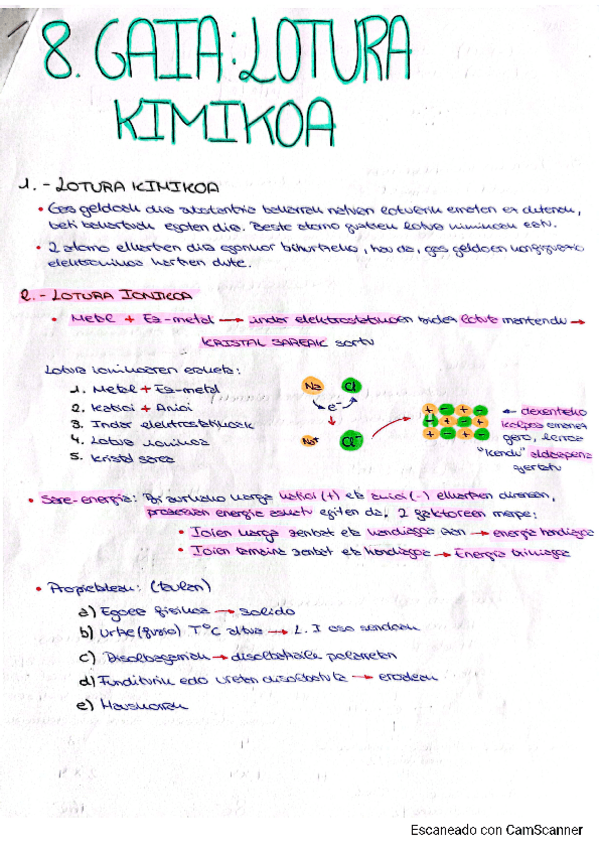 8. GAIA: LOTURA
KIMIKOA
1. - LOTURA KIMIKOA
• Gas geldoak dira substantzia bakarrak naturan loturik ematen ez dutenak,
beti bakartuak egoten dira. Beste atomo guztiek lotura kimikoak
• 2 atomo elkartzen dira egonkor bihurtzeko, hau da, gas geldoen konfigurazio
elektronikoa hartzen dute.
2. - LOTURA IONIKOA
• Metal + Ez-metal → indar elektrostatikoen bidez lotuta mantendu →
KRISTAL SAREAK sortu
Lotura ionikoaren eskema:
1. Metal + Ez-metal
2. Katioi + Anioi
3. Indar elektrostatikoak
4. Lotura ionikoa
5. Kristal sarea
Na Cl
e⁻
Na⁺ Cl⁻
+ - + -
- + -
+ - + -
←
kolpea ematea
gero, ilerroa
"kendu" aldarapena
gertatu
• Sare-energia: Bi aurkako karga katioi (+) eta anioi (-) elkartzen direnean,
prozesuan energia askatu egiten da, 2 faktoreen menpe:
• Ioien karga zenbat eta handiagoa izan → energia handiagoa
• Ioien tamaina zenbat eta handiagoa → Energia txikiagoa
• Propietateak: (taulan)
a) Egoera fisikoa → solido
b) Urtze (fusio) T°C altua → L. I oso sendoak
c) Disolbagarriak → disolbatzaile polarretan
d) Funditurik edo uretan disolbatuta → eroaleak
e) Hauskorrak
Escaneado con CamScanner